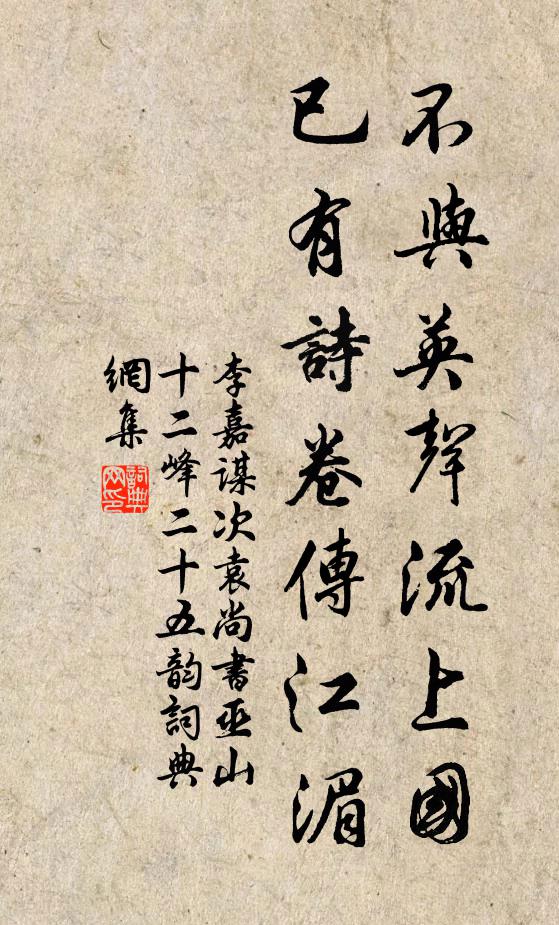 不與英聲流上國
已有詩卷傳江湄
李嘉謀次袁尚書巫山
十二峰二十五韵詞典
網集
詞典網印